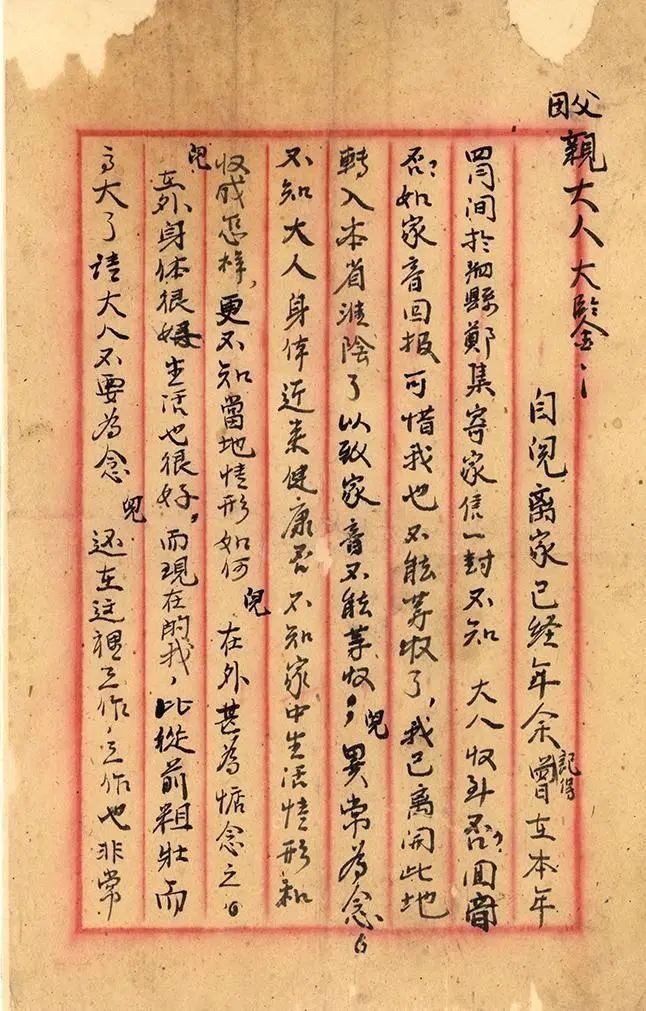 父母親大人大鑒：
自兒离家已経年余記得曾在本年
四月间於泗縣鄭集寄家信一封不知 大人收到否？回音
否？如家音回报可惜我也不能等收了，我已离開此地
轉入本省淮陰了以致家音不能等收，兒異常為念。
不知大人身体近来健康否不知家中生活情形和
收成怎样，更不知當地情形如何 兒在外甚為惦念之。
兒在外身体很好生活也很好，而現在的我，比從前粗壮而
高大了请大人不要為念 兒还在这裡工作，工作也非常